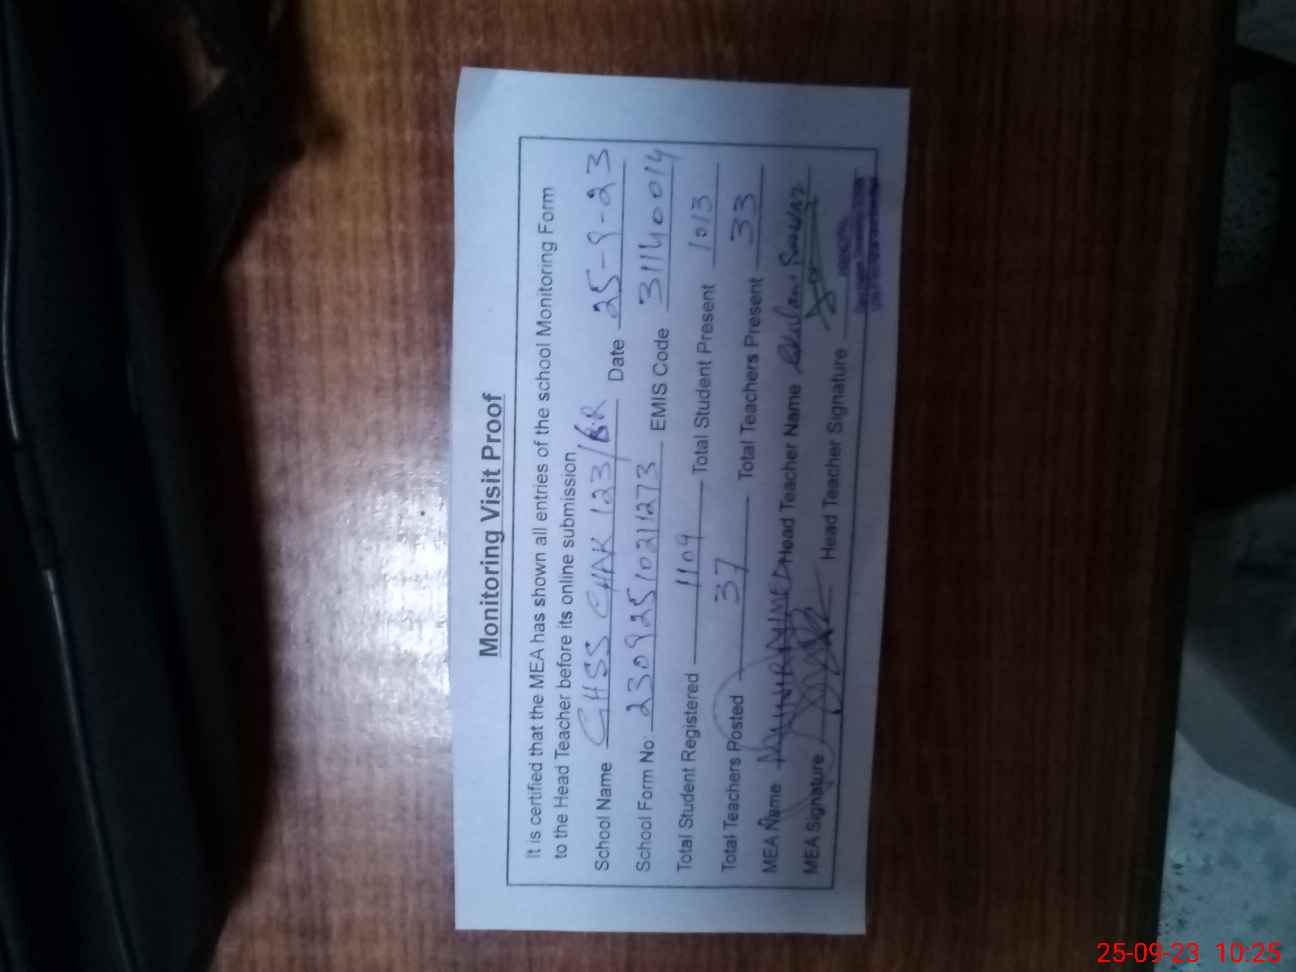 Monitoring Visit Proof
It is certified that the MEA has shown all entries of the school Monitoring Form
to the Head Teacher before its online submission
School Name GHSS CHAK 123/6.R Date 25-9-23
School Form No: 23092510211273 EMIS Code 31140014
Total Student Registered 1109 Total Student Present 1013
Total Teachers Posted 37 Total Teachers Present 33
MEA Name Head Teacher Name
MEA Signature Head Teacher Signature
25-09-23 10:25